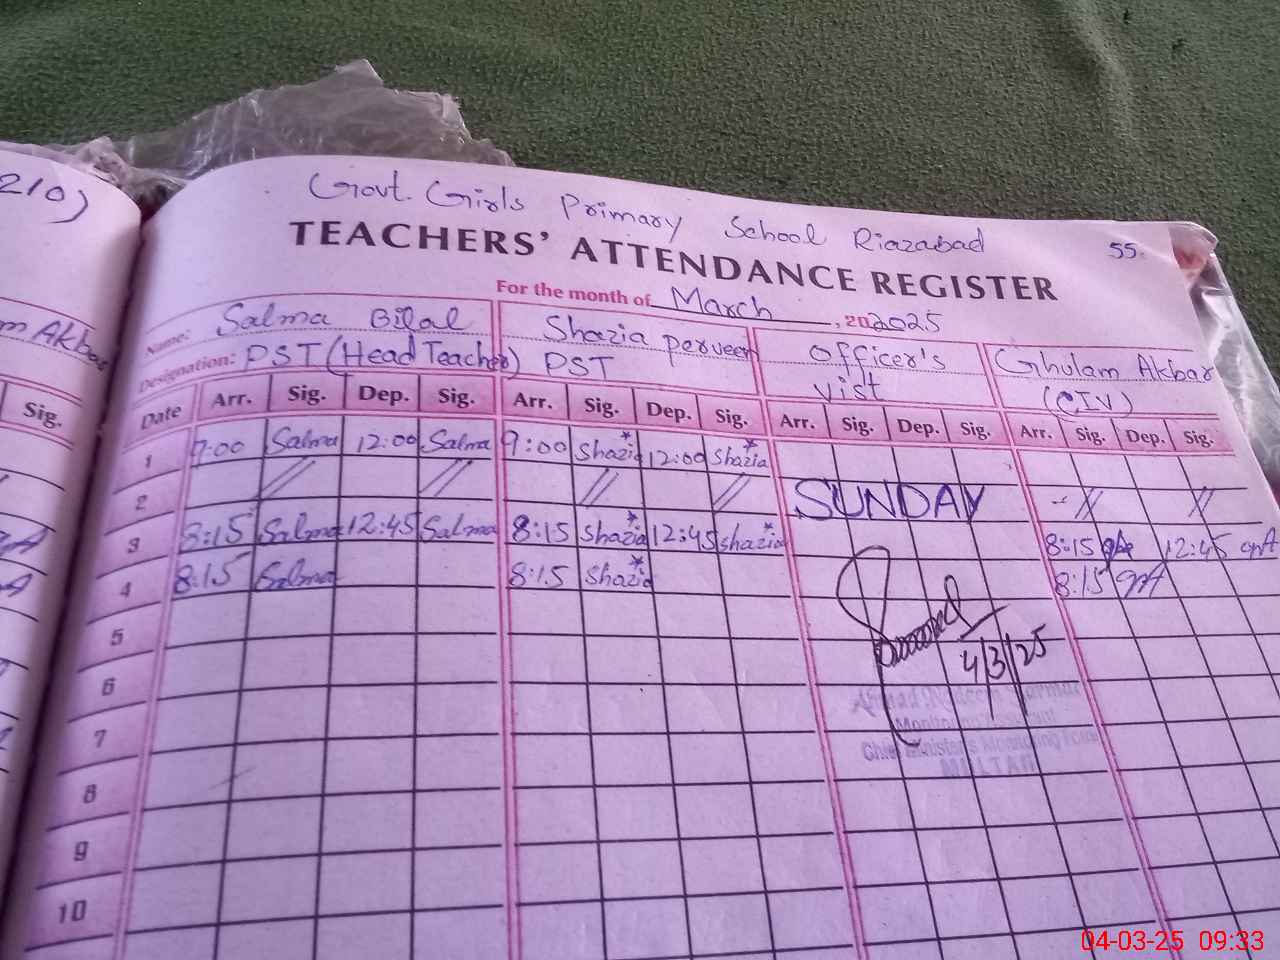 210)
m Akbar
Sig.
Govt. Girls Primary School Riazabad
55.
TEACHERS' ATTENDANCE REGISTER
For the month of March, 202025
Name: Salma Bilal Shazia perveen Officer's vist Ghulam Akbar
Designation: PST (Head Teacher) PST (CIV)
Date Arr. Sig. Dep. Sig. Arr. Sig. Dep. Sig. Arr. Sig. Dep. Sig. Arr. Sig. Dep. Sig.
1 9:00 Salma 12:00 Salma 9:00 Shazia 12:00 Shazia
2 // // // // SUNDAY // //
3 8:15 Salma 12:45 Salma 8:15 Shazia 12:45 Shazia 8:15 12:45
4 8:15 Salma 8:15 Shazia 8:15
5
4/3/25
6
Monitoring Assistant
7
Chief Minister's Monitoring Force
MULTAN
8
9
10
04-03-25 09:33